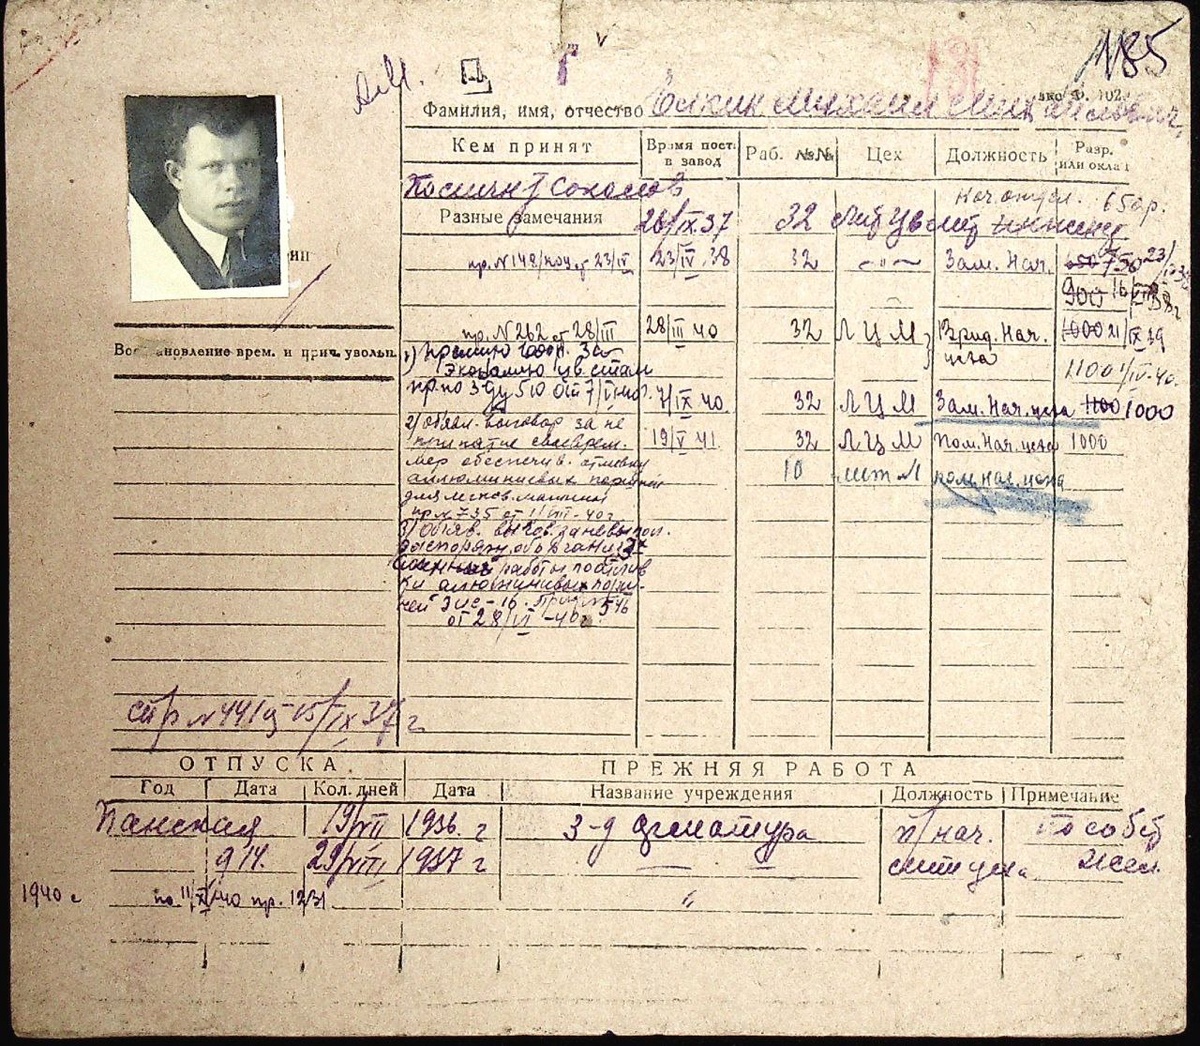 1185
Фамилия, имя, отчество Ёлкин Михаил Михайлович.
Кем принят
Время пост. в завод
Раб. №№
Цех
Должность
Разр. или оклад
Соколов
Разные замечания
26/IX.37 32 Лит Цв Лит инженер
Нач. отдел. 650р.
пр. N 149/ от 23/IV 23/IV 38 32 —"— Зам. Нач. 650 750 23/
900 16/VIII 38г
пр. N 262 от 28/III 28/III 40 32 ЛЦМ Врид. Нач. цеха 1000 21/IX 39
1100 1/IV-40.
Восстановление врем. и прич. увольн.
1) Премию 1000 р. за
Экономию цв. стал
пр. по з-ду 510 от 7/VI 40г. 7/IX 40. 32 ЛЦМ Зам. Нач. цеха 1100 1000
2) Объявл. выговор за не
принятие своеврем. 19/V 41. 32 ЛЦМ Пом. Нач. цеха 1000
мер обеспечив. отливку 10 лит М пом. нач. цеха
аллюминиевых поршней
для легков. машины
пр. N 735 от 1/VIII-40 г.
3) Объяв. выгов. за невыпол.
распоряж. об организ. 3х
сменной работы по отлив
ки алюминиевых порш-
ней ЗИС-16. Приказ 546
от 28/VI-40г
стр N 441 15/IX 37 г
ОТПУСКА
ПРЕЖНЯЯ РАБОТА
Год Дата Кол. дней Дата Название учреждения Должность Примечание
19/VII 1936. г З-д арматура п/нач. по собст
914. 29/VIII 1937 г — — лит цеха жел.
1940 г по 11/X-40 пр. 1231 "